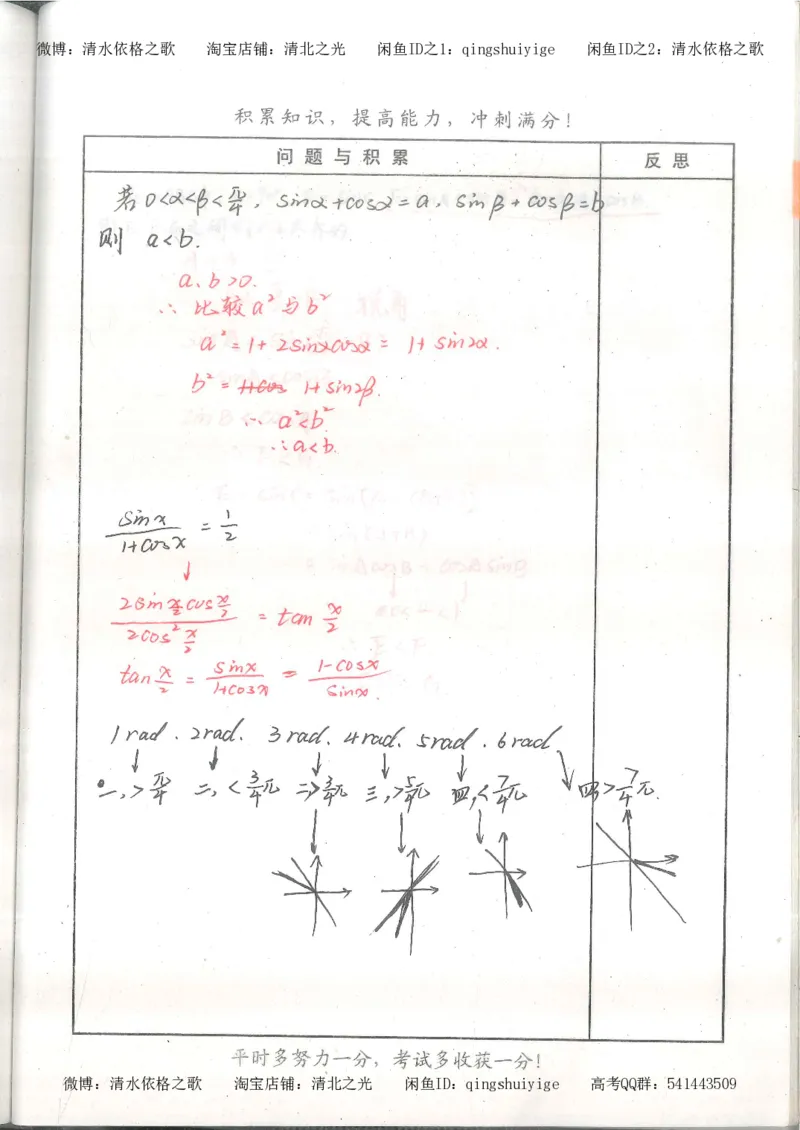 微博：清水依格之歌 淘宝店铺：清北之光 闲鱼ID之1：qingshuiyige 闲鱼ID之2：清水依格之歌
积累知识，提高能力，冲刺满分！
问题与积累 反思
若0<α<β<π/4，sinα+cosα=a，sinβ+cosβ=b
则 a<b.
a、b>0.
∴ 比较a²与b²
a²=1+2sinαcosα= 1+sin2α.
b²= 1+sin2β.
∴ a²<b²
∴a<b.
sinx/(1+cosx) = 1/2
↓
2sin x/2 cos x/2 / 2cos² x/2 = tan x/2
tan x/2 = sinx/(1+cosx) = (1-cosx)/sinx.
1rad. 2rad. 3rad. 4rad. 5rad. 6rad
一,>π/4 二,<3/4π 二>3/4π 三,>5/4π 四,<7/4π 四>7/4π.
平时多努力一分，考试多收获一分！
微博：清水依格之歌 淘宝店铺：清北之光 闲鱼ID：qingshuiyige 高考QQ群：541443509